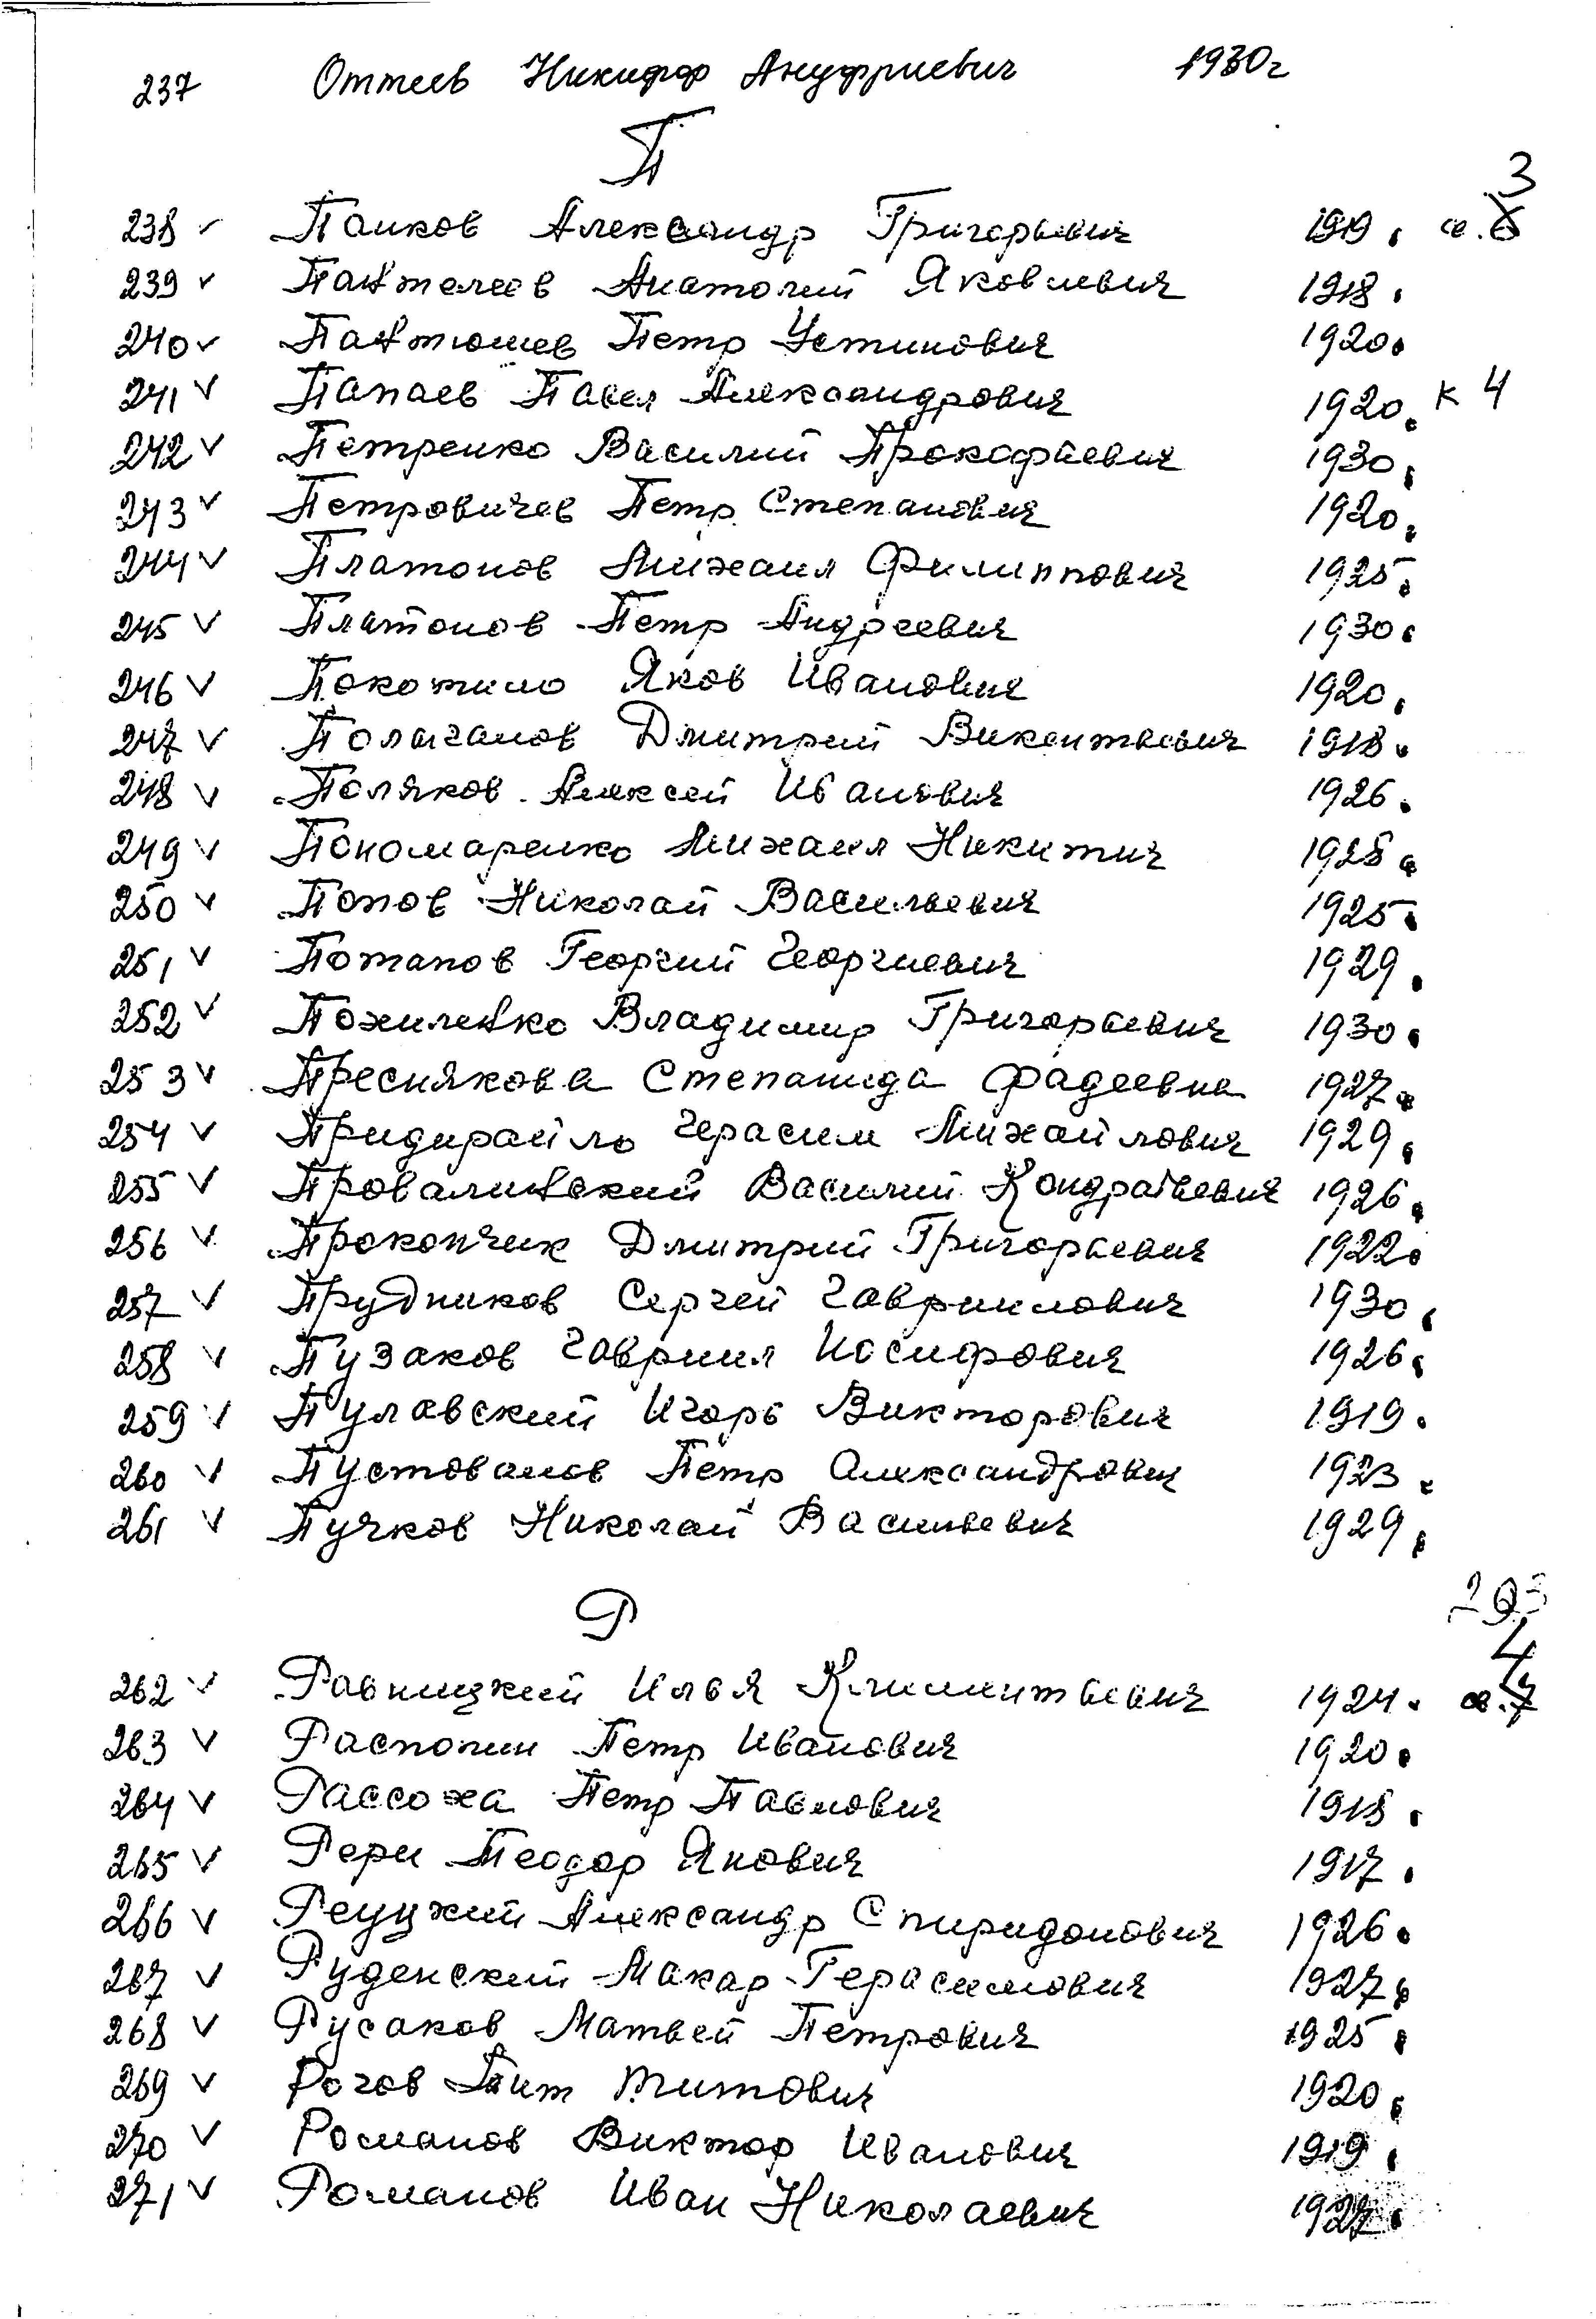 237 Оттеев Никифор Ануфриевич 1930г
П
3
238 ✓ Панков Александр Григорьевич 1919. св. 6
239 ✓ Пантелеев Анатолий Яковлевич 1918.
240 ✓ Пантюшев Петр Устинович 1920.
241 ✓ Папаев Павел Александрович 1920. к 4
242 ✓ Петренко Василий Прокофьевич 1930.
243 ✓ Петровичев Петр Степанович 1920.
244 ✓ Платонов Михаил Филиппович 1925.
245 ✓ Платонов Петр Андреевич 1930.
246 ✓ Покотило Яков Иванович 1920.
247 ✓ Полыганов Дмитрий Викентьевич 1918.
248 ✓ Поляков Алексей Иванович 1926.
249 ✓ Пономаренко Михаил Никитич 1928.
250 ✓ Попов Николай Васильевич 1925.
251 ✓ Потапов Георгий Георгиевич 1929.
252 ✓ Похиленко Владимир Григорьевич 1930.
253 ✓ Преснякова Степанида Фадеевна 1927.
254 ✓ Придирайло Герасим Михайлович 1929.
255 ✓ Провалинский Василий Кондратьевич 1926.
256 ✓ Прокопчик Дмитрий Григорьевич 1922.
257 ✓ Прудников Сергей Гавриилович 1930.
258 ✓ Пузаков Гавриил Иосифович 1926.
259 ✓ Пулавский Игорь Викторович 1919.
260 ✓ Пустовалов Петр Александрович 1923.
261 ✓ Пучков Николай Васильевич 1929.
Р
4
262 ✓ Равницкий Илья Климентьевич 1924. св. 7
263 ✓ Распопин Петр Иванович 1920.
264 ✓ Рассоха Петр Павлович 1918.
265 ✓ Рери Теодор Янович 1917.
266 ✓ Реуцкий Александр Спиридонович 1926.
267 ✓ Руденский Макар Герасимович 1927.
268 ✓ Русаков Матвей Петрович 1925.
269 ✓ Рогов Тит Титович 1920.
270 ✓ Романов Виктор Иванович 1919.
271 ✓ Романов Иван Николаевич 1927.